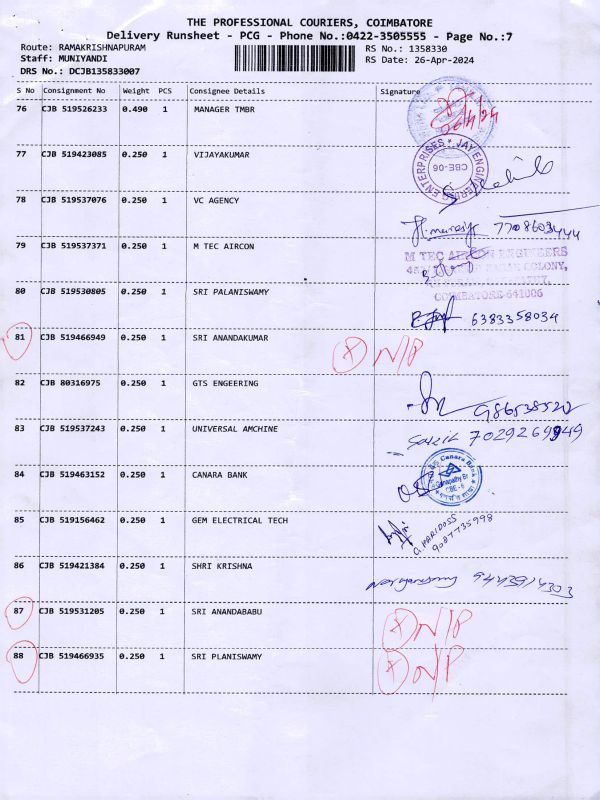 THE PROFESSIONAL COURIERS, COIMBATORE
Delivery Runsheet - PCG - Phone No.:0422-3505555 - Page No.:7
Route: RAMAKRISHNAPURAM RS No.: 1358330
Staff: MUNIYANDI RS Date: 26-Apr-2024
DRS No.: DCJB135833007
S No Consignment No Weight PCS Consignee Details Signature
76 CJB 519526233 0.490 1 MANAGER TMBR
26/4/24
77 CJB 519423085 0.250 1 VIJAYAKUMAR
JAY ENGINEERING ENTERPRISES
CBE-06
78 CJB 519537076 0.250 1 VC AGENCY
7708603444
79 CJB 519537371 0.250 1 M TEC AIRCON
M TEC AIRCON ENGINEERS
COLONY,
COIMBATORE-641006
80 CJB 519530805 0.250 1 SRI PALANISWAMY
6383358034
81 CJB 519466949 0.250 1 SRI ANANDAKUMAR
N/P
82 CJB 80316975 0.250 1 GTS ENGEERING
83 CJB 519537243 0.250 1 UNIVERSAL AMCHINE
84 CJB 519463152 0.250 1 CANARA BANK
Canara Bank
Ganapathy Br
CBE - 6
85 CJB 519156462 0.250 1 GEM ELECTRICAL TECH
G. MARIDOSS
9087735998
86 CJB 519421384 0.250 1 SHRI KRISHNA
87 CJB 519531205 0.250 1 SRI ANANDABABU
N/P
88 CJB 519466935 0.250 1 SRI PLANISWAMY
N/P